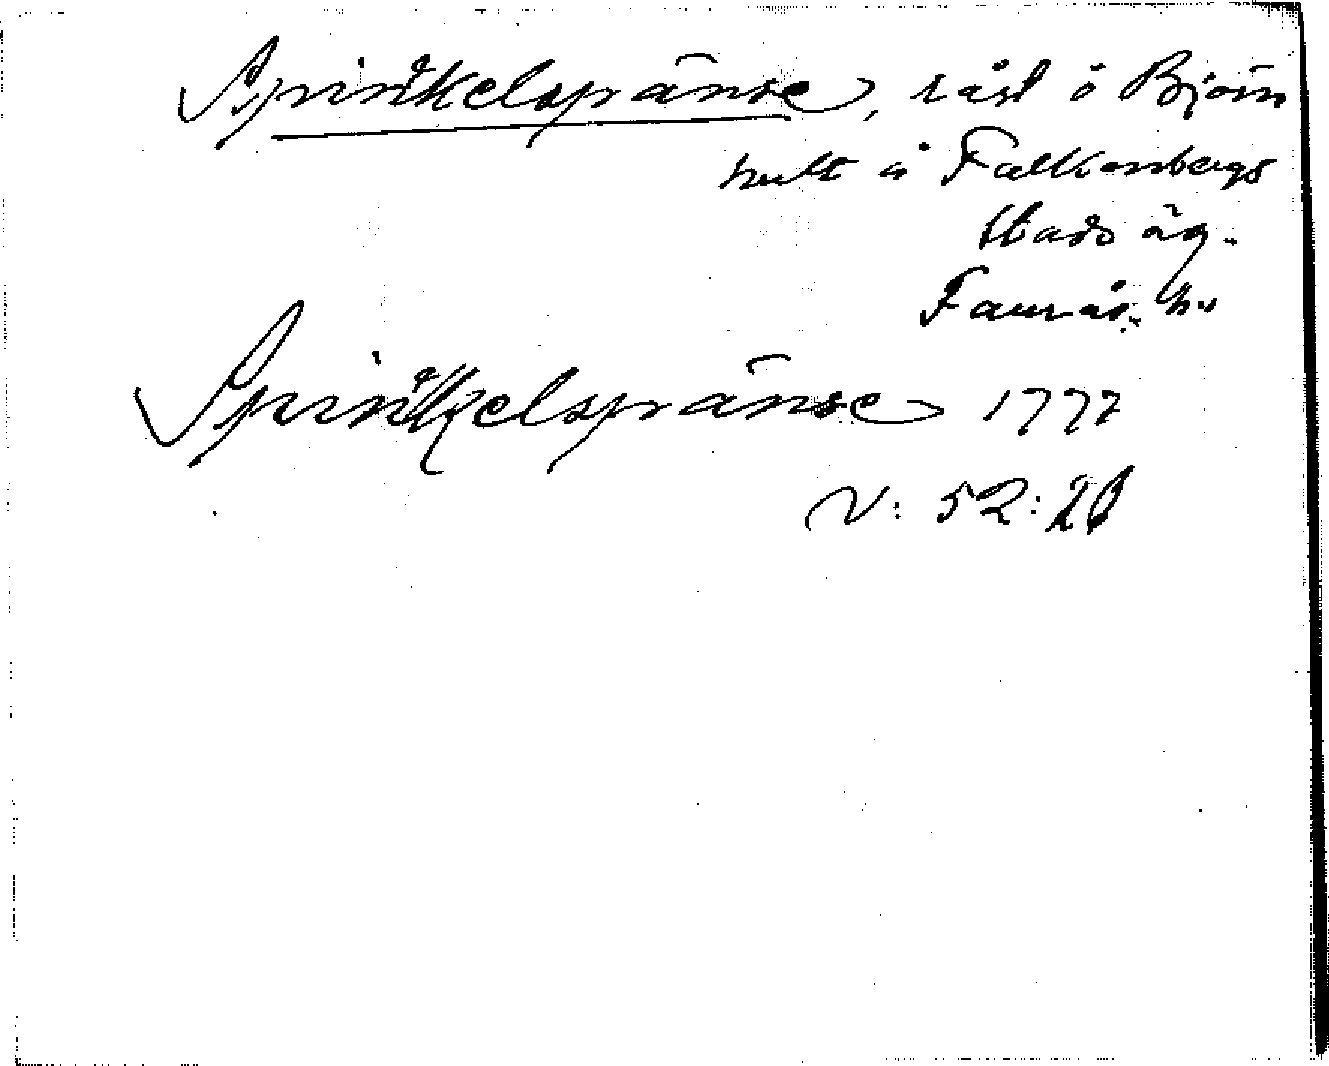 Spinkelspänse, råsl å Björn
hult å Falkenbergs
stads äg.
Faurås. h.
Spinkelspänse 1777
N: 52:21